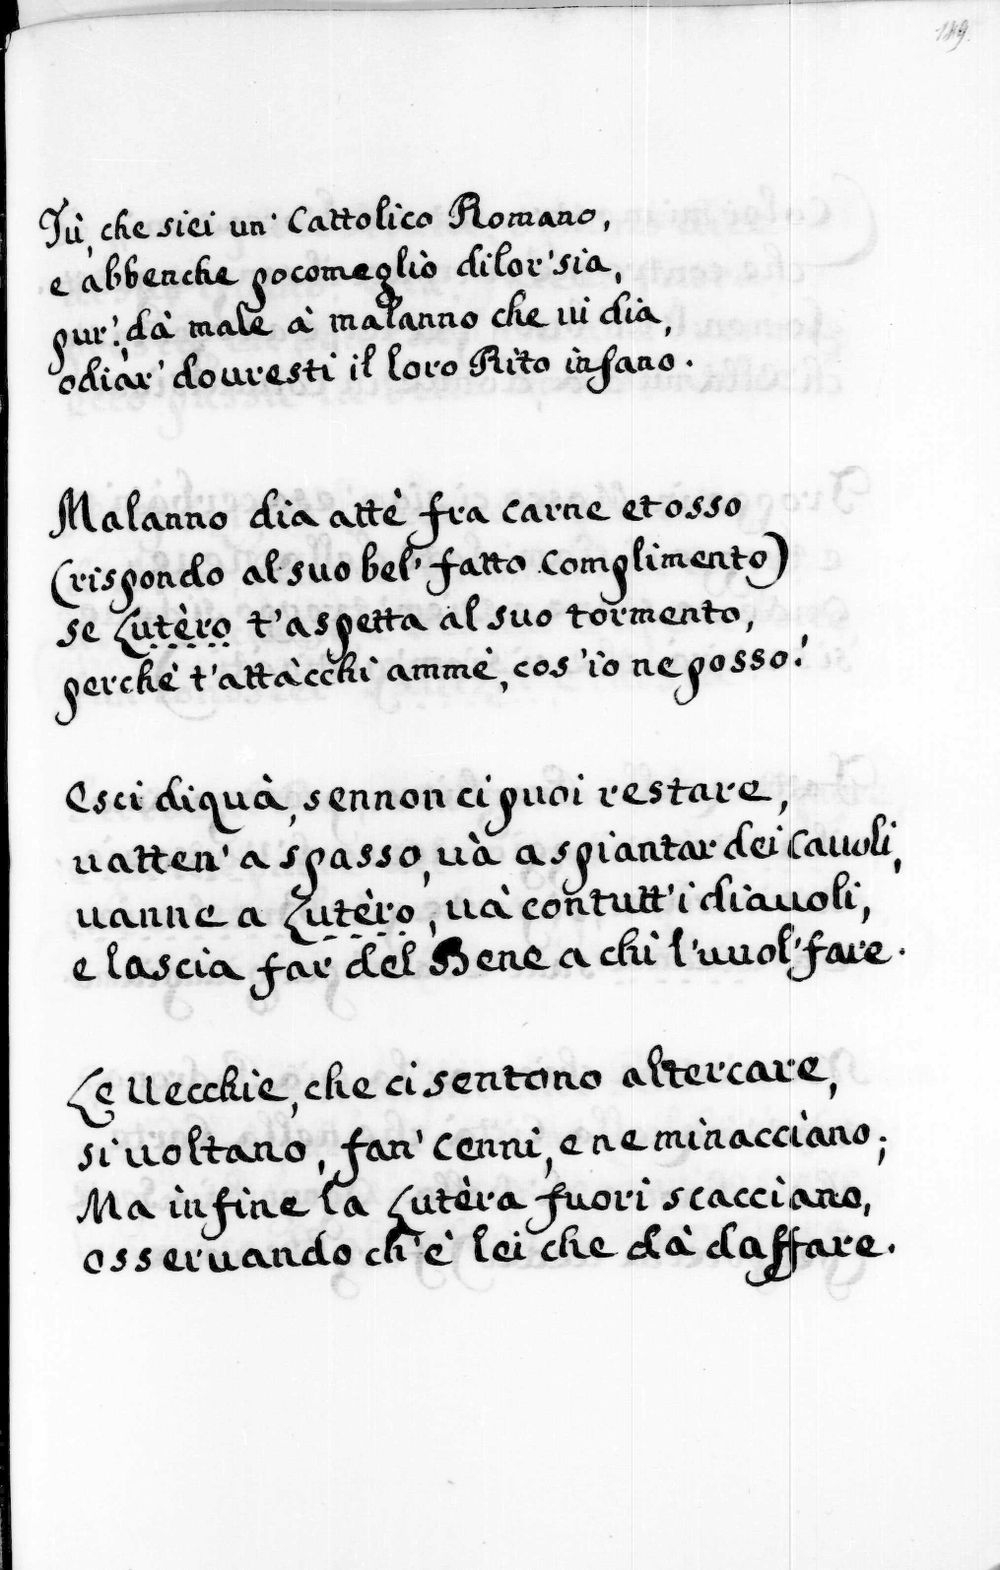 149.
Tù, che siei un' Cattolico Romano,
e abbenche pocomegliò dilor'sia,
pur', dà male à malanno che ui dia,
odiar' douresti il loro Rito insano.
Malanno dia attè fra carne et osso
(rispondo al suo bel' fatto Complimento)
se Lutèro t'aspetta al suo tormento,
perchè t'attàcchi ammè, cos'io ne posso!
Esci diquà, sennon ci puoi restare,
uatten' a spasso, uà a spiantar dei Cauoli,
uanne a Lutèro, uà con tutt'i diauoli,
e lascia far del Bene a chi l'uuol'fare.
Le Uecchie, che ci sentono altercare,
si uoltano, fan' Cenni, e ne minacciano;
Ma infine la Lutèra fuori scacciano,
osseruando ch'è lei che dà daffare.